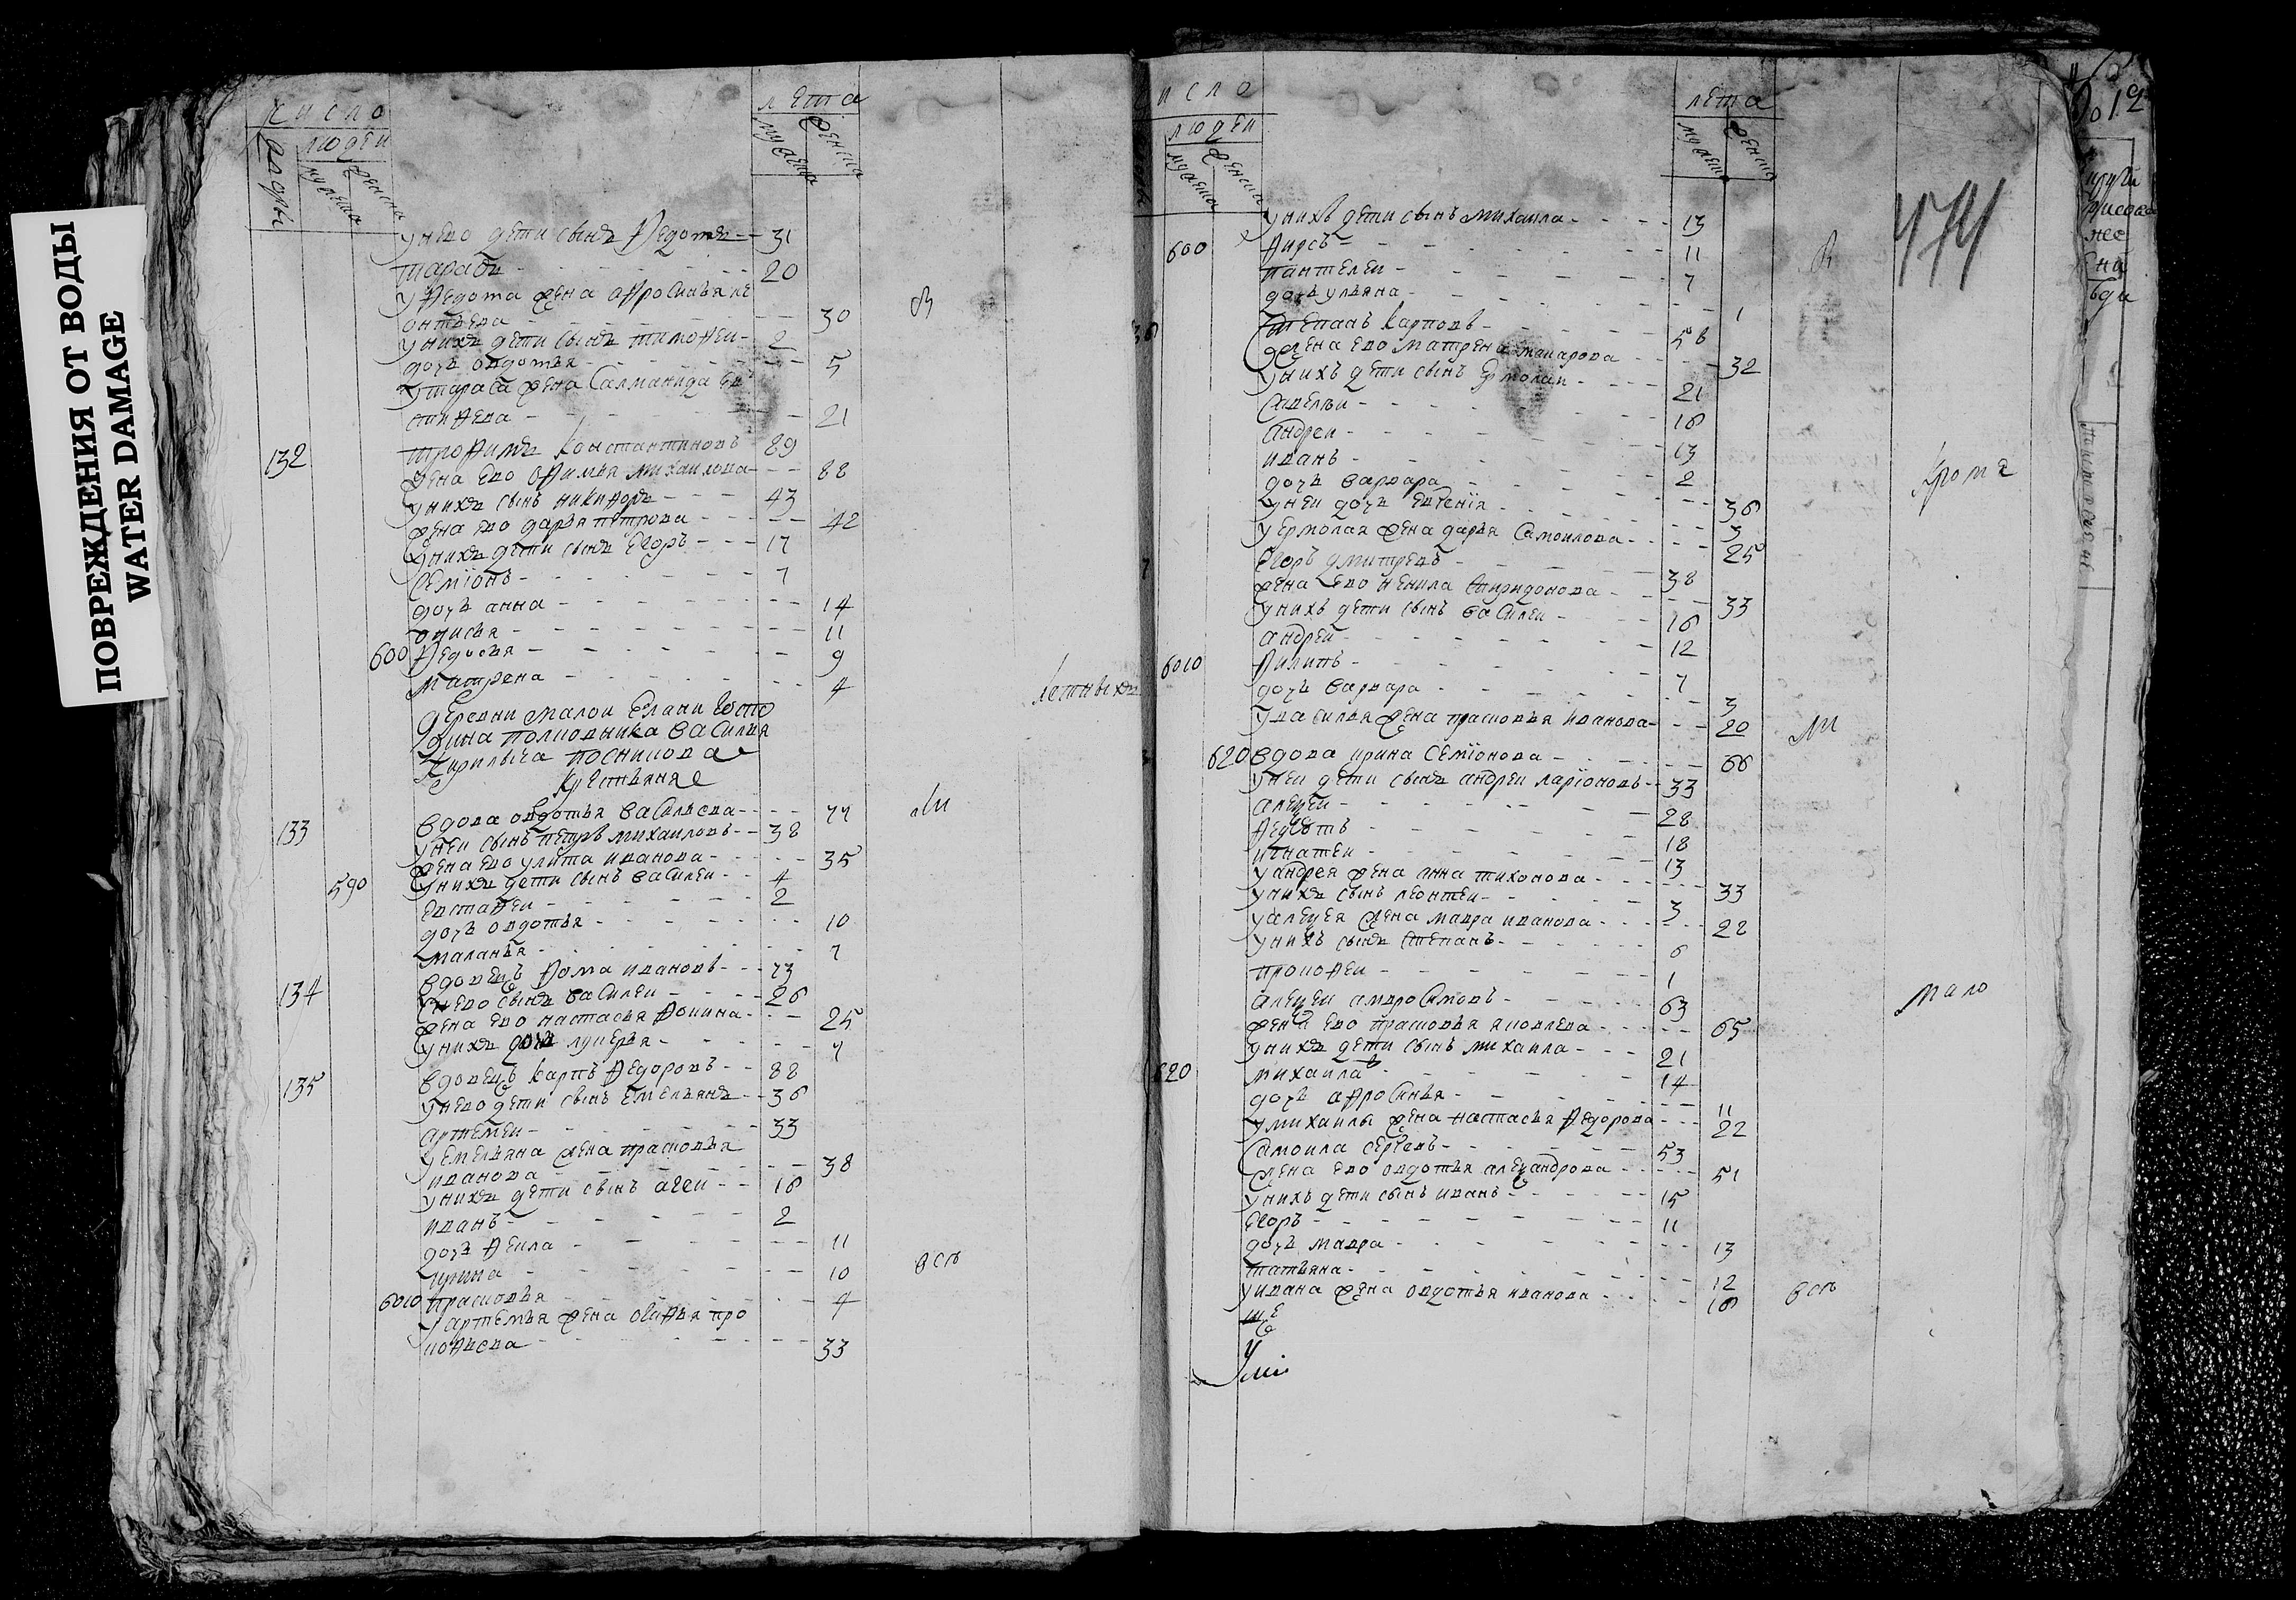 ПОВРЕЖДЕНИЯ ОТ ВОДЫ
WATER DAMAGE
число
людеи
лета
мужеска
женска
унево дети сынъ Ѳедотъ 31
тарасъ 20
уѲедота жена аѲросинья ле
онтьева 30
унихъ дети сынъ тимоѲеи 2
дочь овдотья 5
утараса жена Саламанида ев
стиѲева 21
132 троѲимъ Константиновъ 89
жена ево оѲимья михаилова 88
унихъ сынъ никиѲоръ 43
жена ево дарья петрова 42
унихъ дети сынъ Егоръ 17
Семїонъ 7
дочь анна 14
анисья 11
600 Ѳедосья 9
матрена 4
деревни малои Елани Госпо
дина полковника Василья
Кирильича посникова
Крестьяня
133 вдова овдотья васильева 77
унеи сынъ петръ михаиловъ 38
жена ево улита иванова 35
590 унихъ дети сынъ василеи 4
ЕвстаѲеи 2
дочь овдотья 10
маланья 7
134 вдовецъ Ѳома ивановъ 73
унево сынъ василеи 26
жена ево настасья Ѳокина 25
унихъ дочь лукерья 7
135 вдовецъ карпъ Ѳедоровъ 88
унево дети сынъ Емельянъ 36
артемеи 33
уемельяна жена прасковья
иванова 38
унихъ дети сынъ агеи 16
иванъ 2
дочь Ѳекла 11
ирина 10
6010 прасковья 4
уартемья жена огаѲья про
коѲьева 33
вси
число
людеи
лета
мужеска
женска
474
унихъ дети сынъ михаила 13
600 Ѳирсъ 11
пантелеи 7
дочь ульяна 1
Степанъ карповъ 58
жена ево матрена макарова 32
унихъ дети сынъ Ермолаи 21
Савельи 16
андреи 13
иванъ 2
дочь варвара 36
унеи дочь Евгенїя 3
уермолая жена дарья Самоилова 25
Егоръ дмитревъ 38
жена ево ненила Спиридонова 33
унихъ дети сынъ василеи 16
андреи 12
6010 Ѳилипъ 7
дочь варвара 3
увасилья жена прасковья иванова 20
620 вдова ирина Семїонова 66
унеи дети сынъ андреи ларїоновъ 33
алекѣеи 28
Ѳедотъ 18
игнатеи 13
уандрея жена анна тихонова 33
унихъ сынъ леонтеи 3
уалексея жена мавра иванова 22
унихъ сынъ Степанъ 6
прокоѲеи 1
алексеи амвросимовъ 63
жена ево прасковья яковлева 65
унихъ дети сынъ михаила 21
620 михаила 14
дочь аѲросинья 11
умихаилы жена настасья Ѳедорова 22
Самоила Сергеевъ 53
жена ево овдотья александрова 51
унихъ дети сынъ иванъ 15
Егоръ 11
дочь мавра 13
татьяна 12
уивана жена овдотья иванова 16
вси
мало